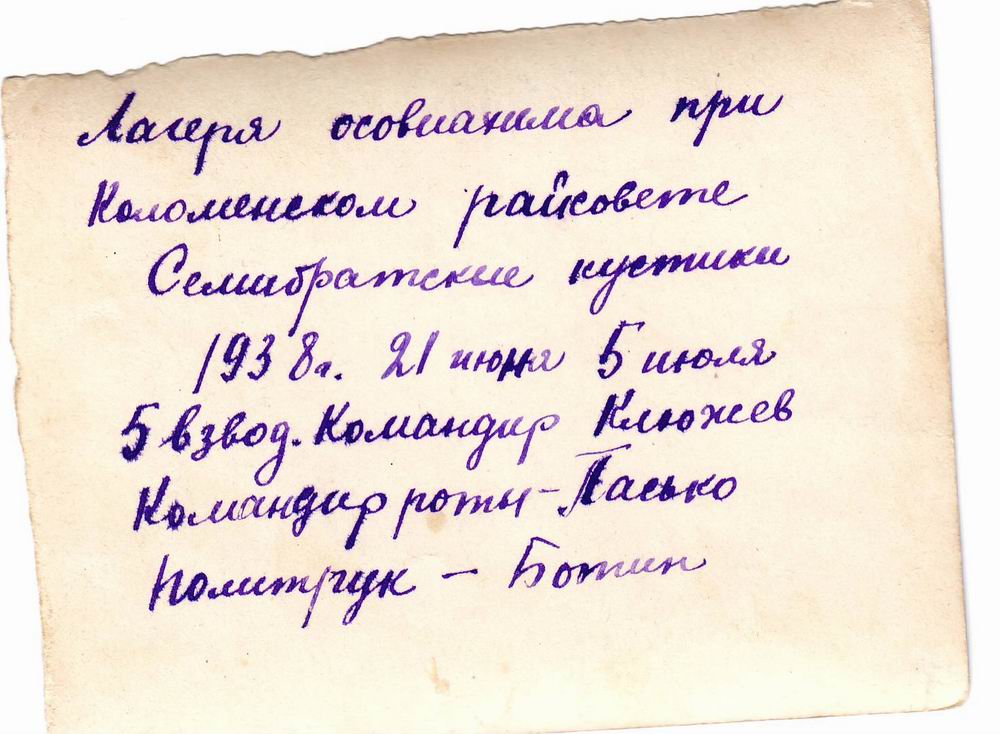 Лагеря осовиахима при
Коломенском райсовете
Семибратские кустики
1938г. 21 июня 5 июля
5 взвод. Командир Клюжев
Командир роты - Пасько
политрук - Ботин